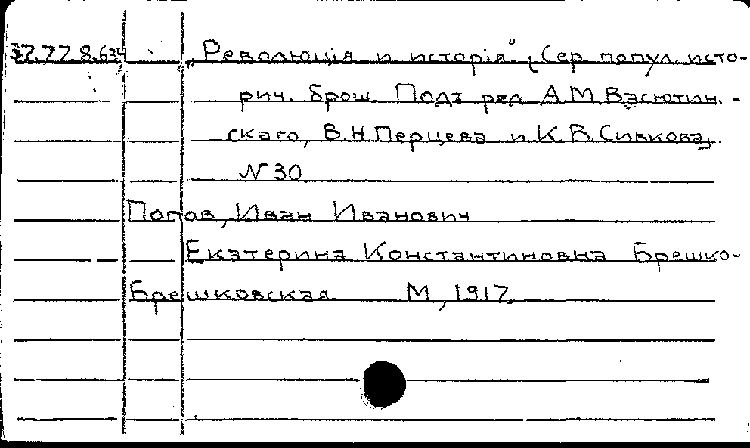 37.27.8.634 „Революція и исторія". [Сер. попул. исто-
рич. брош. Подъ ред. А.М.Васютин-
скаго, В.Н.Перцева и К.В.Сивкова].
№ 30
Попов, Иван Иванович
Екатерина Константиновна Брешко-
Брешковская. М., 1917.